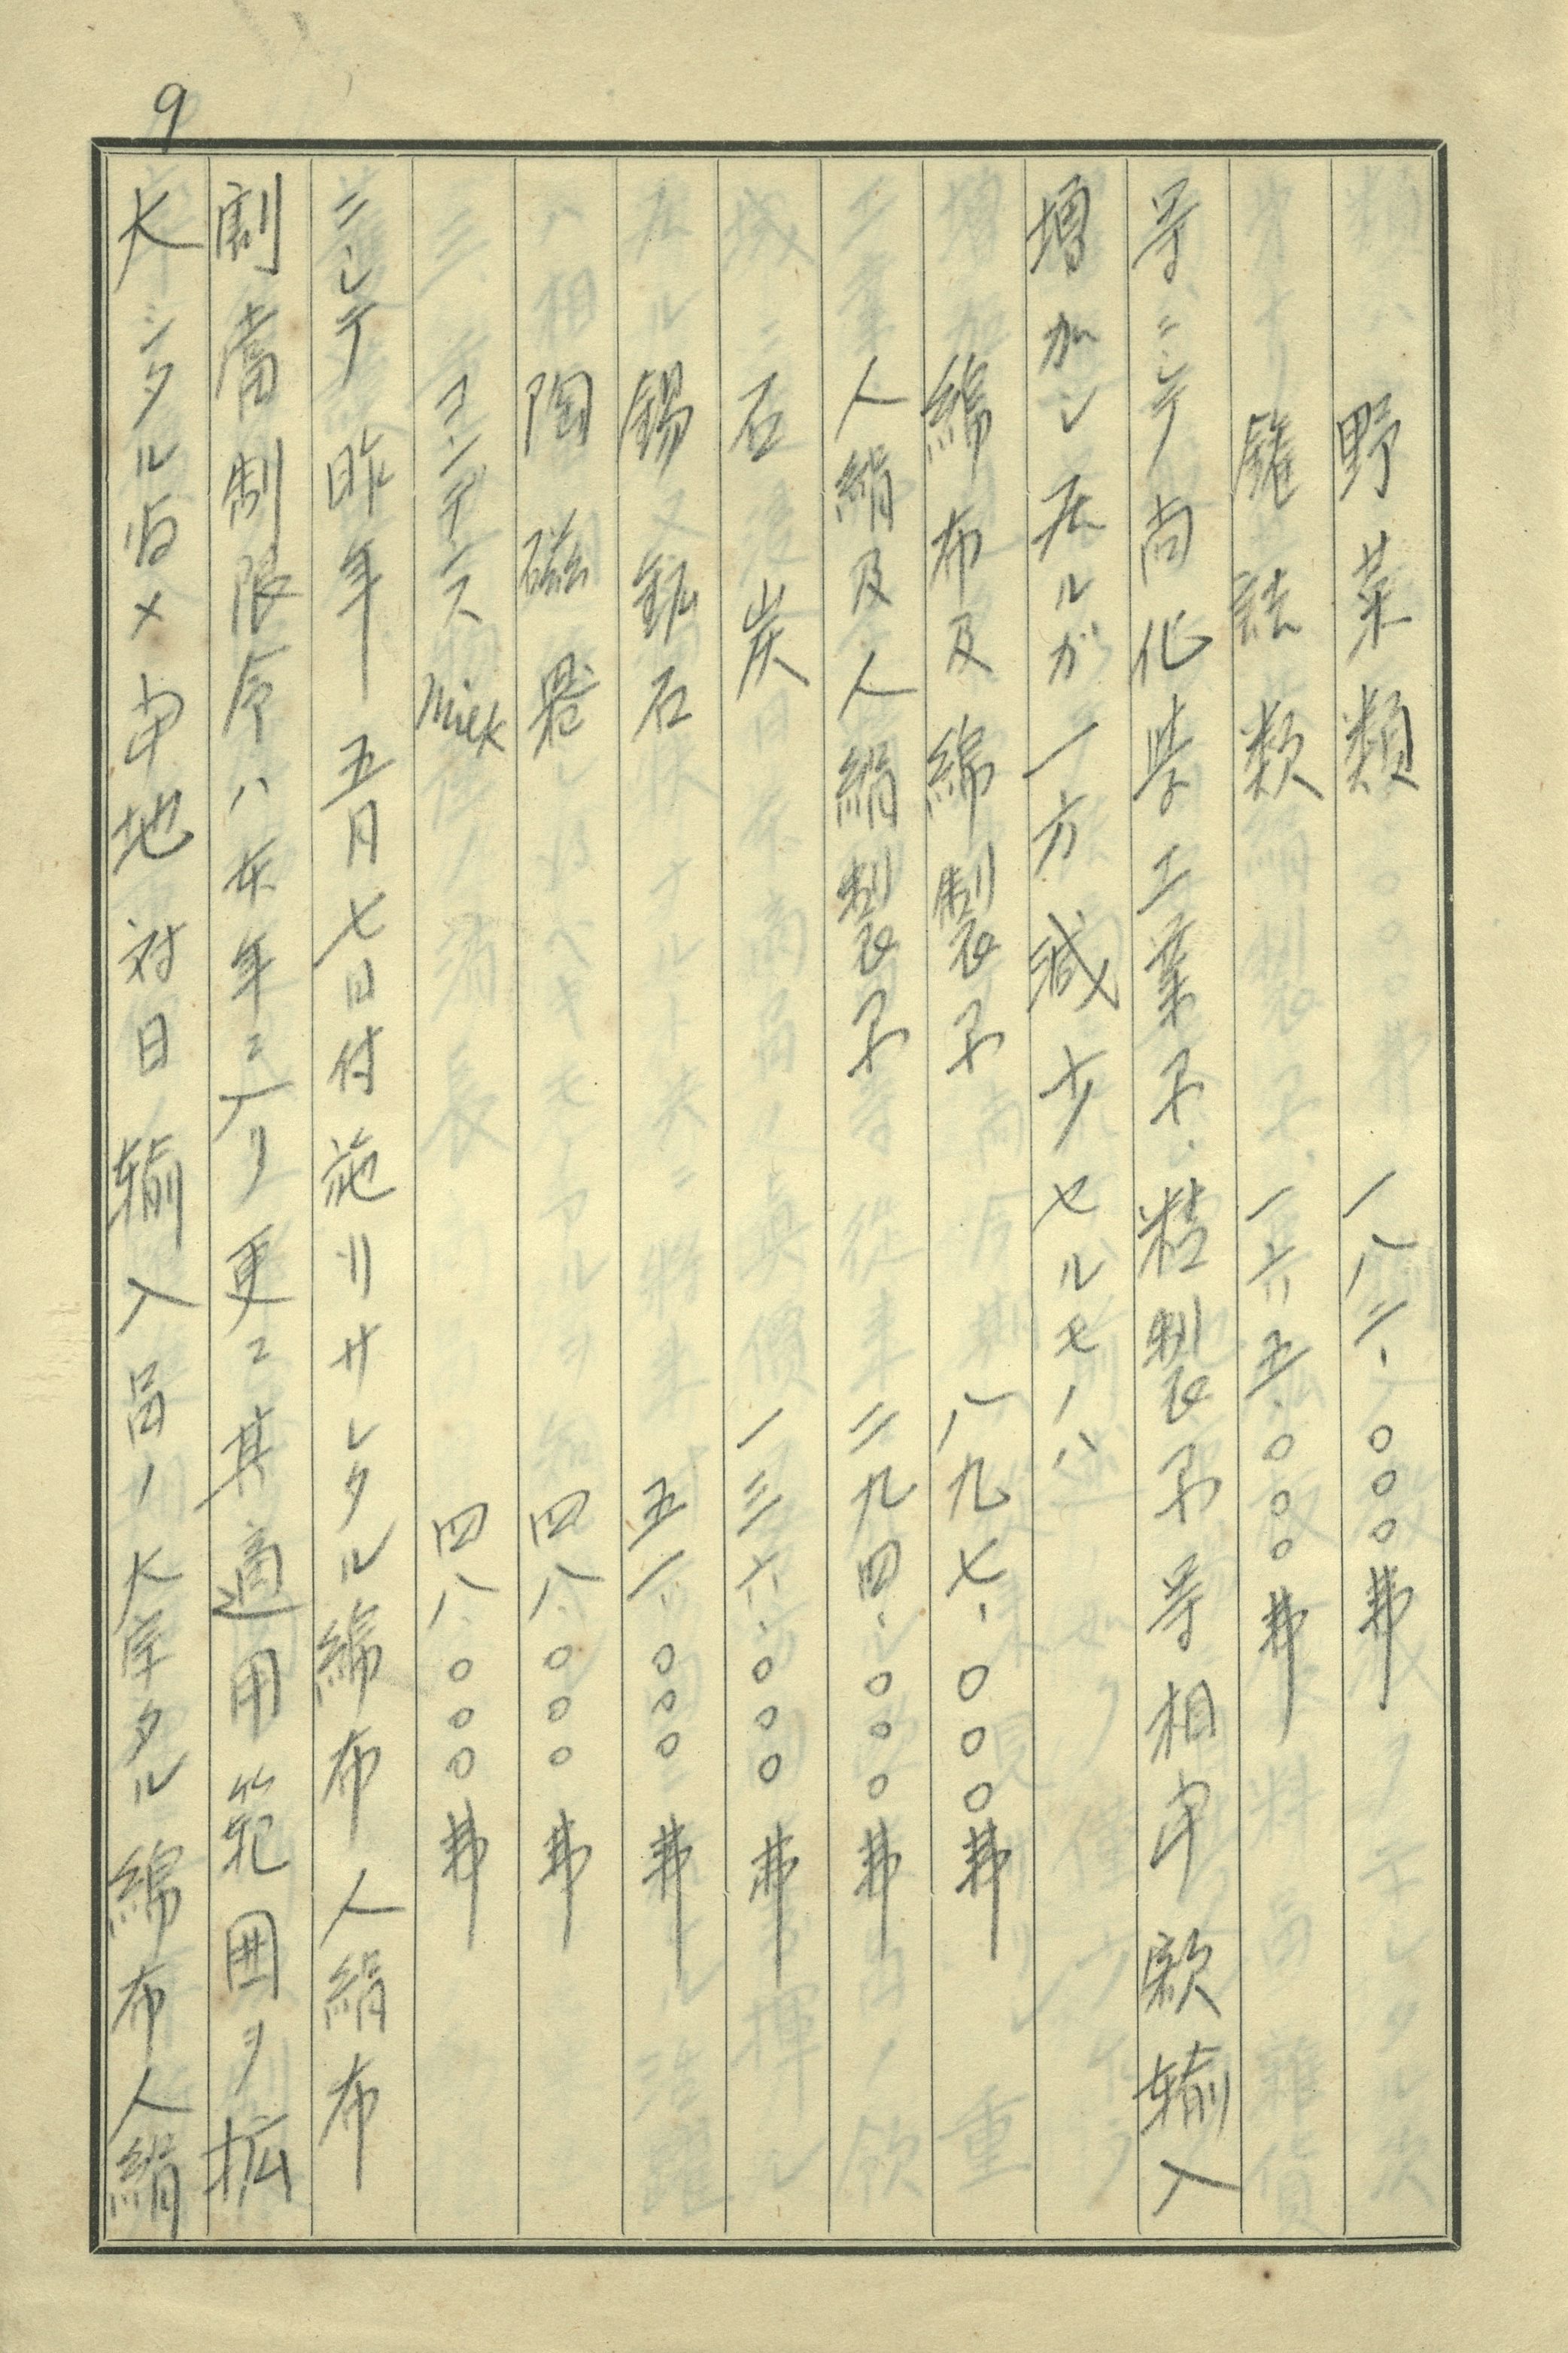 9
野菜類 一八二、〇〇〇弗
罐詰類 一六五、〇〇〇弗
等ニシテ尚化学工業品、粘製品等相当額輸入
増加シ居ルガ一方減少セルモノハ
綿布及綿製品 八九七、〇〇〇弗
人絹及人絹製品 二九四、〇〇〇弗
石炭 一三六、〇〇〇弗
錫鉱石 五一、〇〇〇弗
陶磁器 四八、〇〇〇弗
コンデンス milk 四八、〇〇〇弗
ニシテ昨年五月七日付施行サレタル綿布人絹布
割当制限令ハ本年ニ入リ更ニ其適用範囲ヲ拡
大シタル為メ当地対日輸入品ノ大宗タル綿布人絹